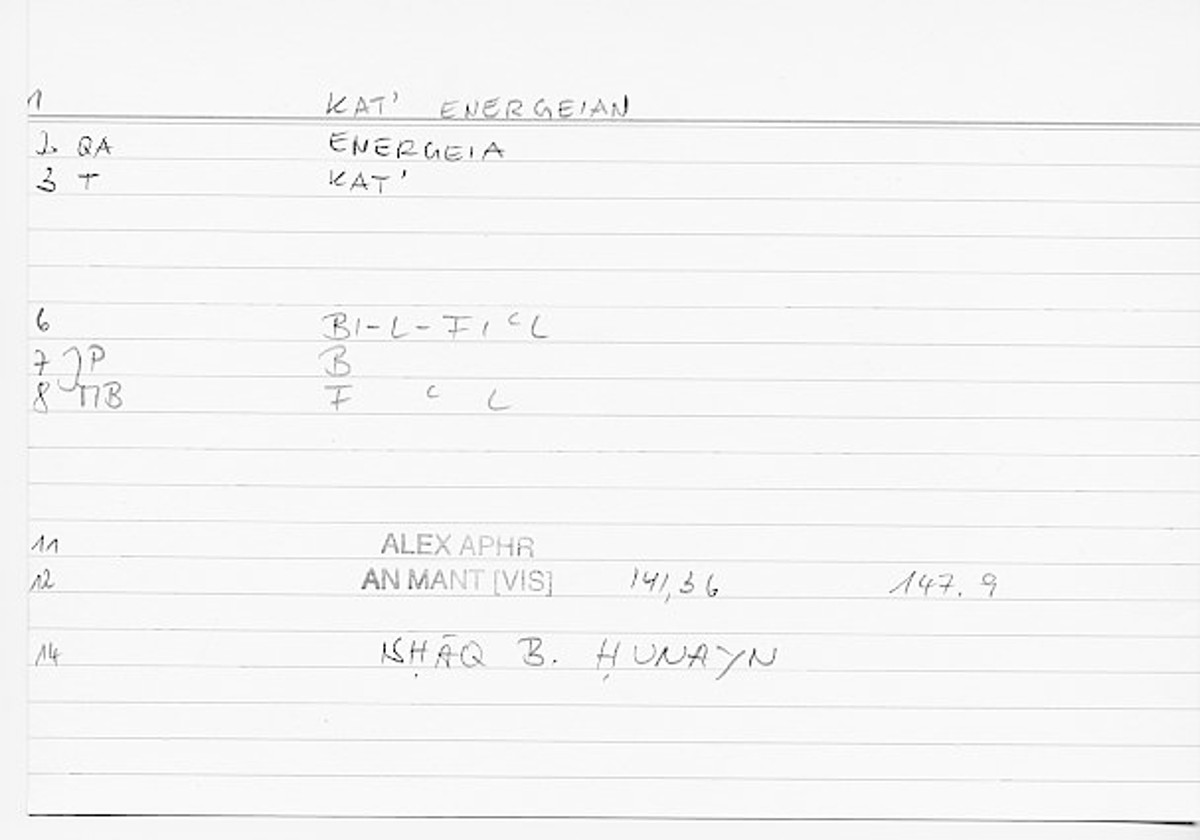 1 KAT' ENERGEIAN
2. QA ENERGEIA
3 T KAT'
6 BI-L-FIᶜL
7 P B
8 MB F ᶜ L
11 ALEX APHR
12 AN MANT [VIS] 141,36 147.9
14 ISḤĀQ B. ḤUNAYN